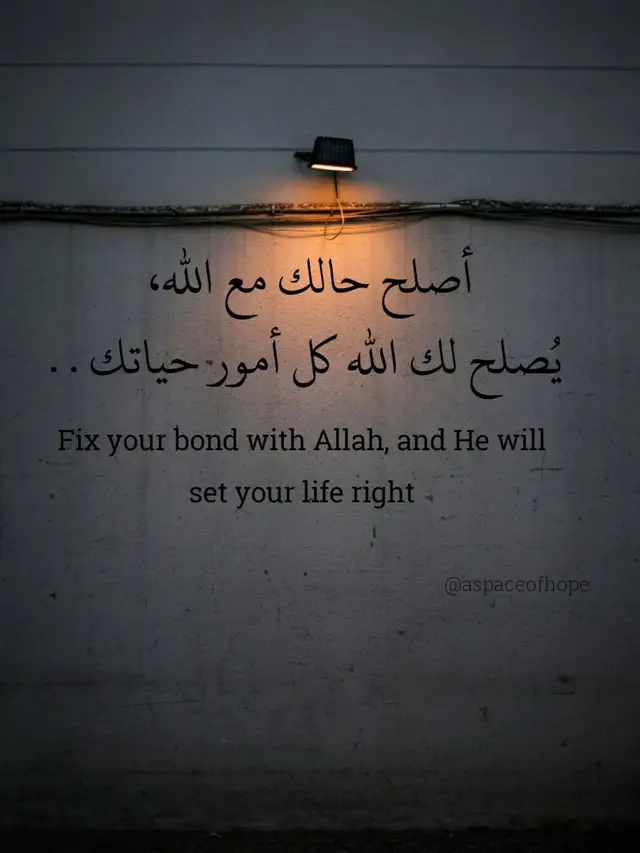 أصلح حالك مع الله،
يُصلح لك الله كل أمور حياتك . .
Fix your bond with Allah, and He will
set your life right
@aspaceofhope